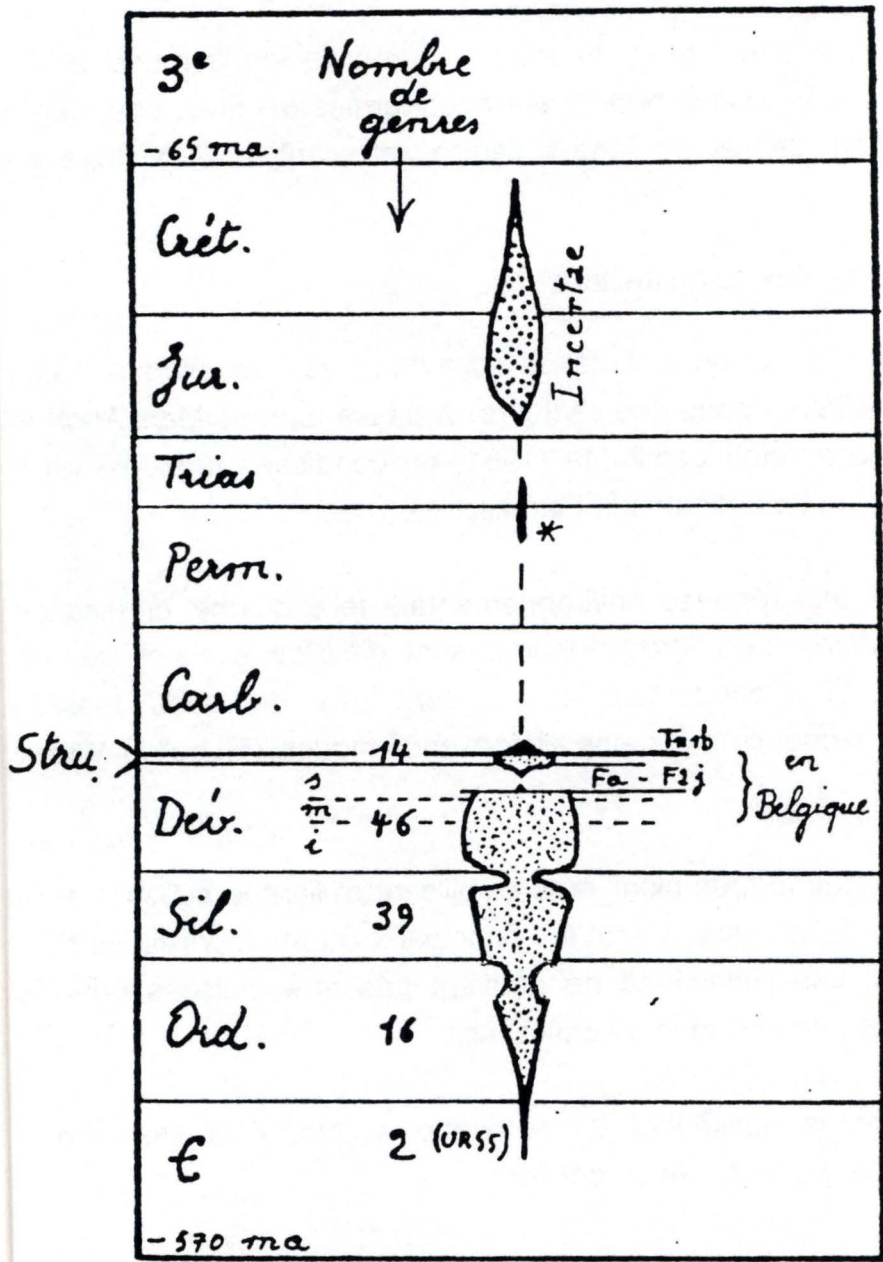 3e
Nombre
de
genres
-65 ma.
Crét.
Incertae
Jur.
Trias
*
Perm.
Carb.
Stru.
14
Tn1b
Fa
F2j
en
Belgique
s
m
i
Dév.
46
Sil.
39
Ord.
16
Є
2 (URSS)
-570 ma